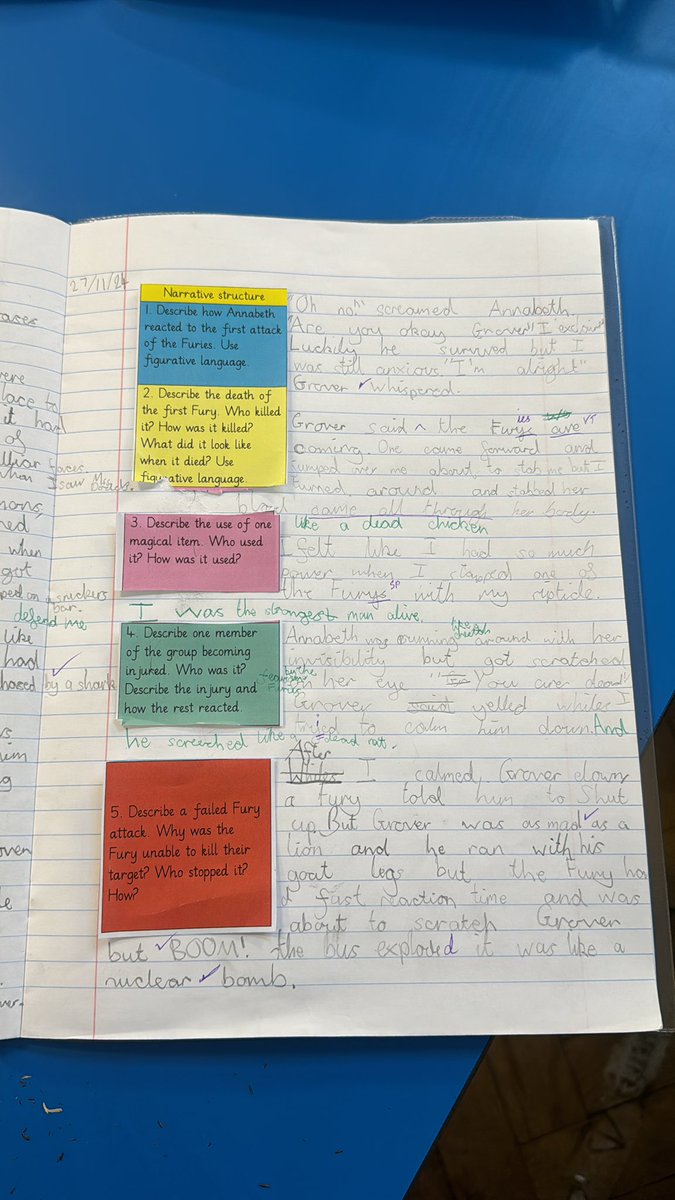 27/11/24
Narrative structure
1. Describe how Annabeth
reacted to the first attack
of the Furies. Use
figurative language.
2. Describe the death of
the first Fury. Who killed
it? How was it killed?
What did it look like
when it died? Use
figurative language.
3. Describe the use of one
magical item. Who used
it? How was it used?
4. Describe one member
of the group becoming
injured. Who was it?
Describe the injury and
how the rest reacted.
5. Describe a failed Fury
attack. Why was the
Fury unable to kill their
target? Who stopped it?
How?
"Oh no!" screamed Annabeth.
"Are you okay Grover" I
Luckily he survived but I
was still anxious. "I'm alright"
Grover whispered.
Grover said ^ the Furys ies are VT
coming. One came forward and
jumped over me about to but I
turned around and stabbed her
blood came all through her body.
like a dead chicken
I felt like I had so much
power when I one of
the Furys sp with my riptide.
I was the strongest man alive.
like a cheetah
Annabeth was running around with her
invisibility but got scratched
by the
Furies
in her eye "You are dead"
Grover yelled whiles I
tried to calm him down. And
he screeched like a dead rat.
After
Whiles I calmed Grover down
a Fury told him to Shut
up. But Grover was as mad as a
lion and he ran with his
goat legs but the Fury ha
d fast reaction time and was
about to scratch Grover
but BOOM! the bus exploded it was like a
nuclear bomb.
were
place to
it had
of
faces.
when I saw Mrs
when
got
on a snickers
bar.
defend me
like
had
by a shark
him